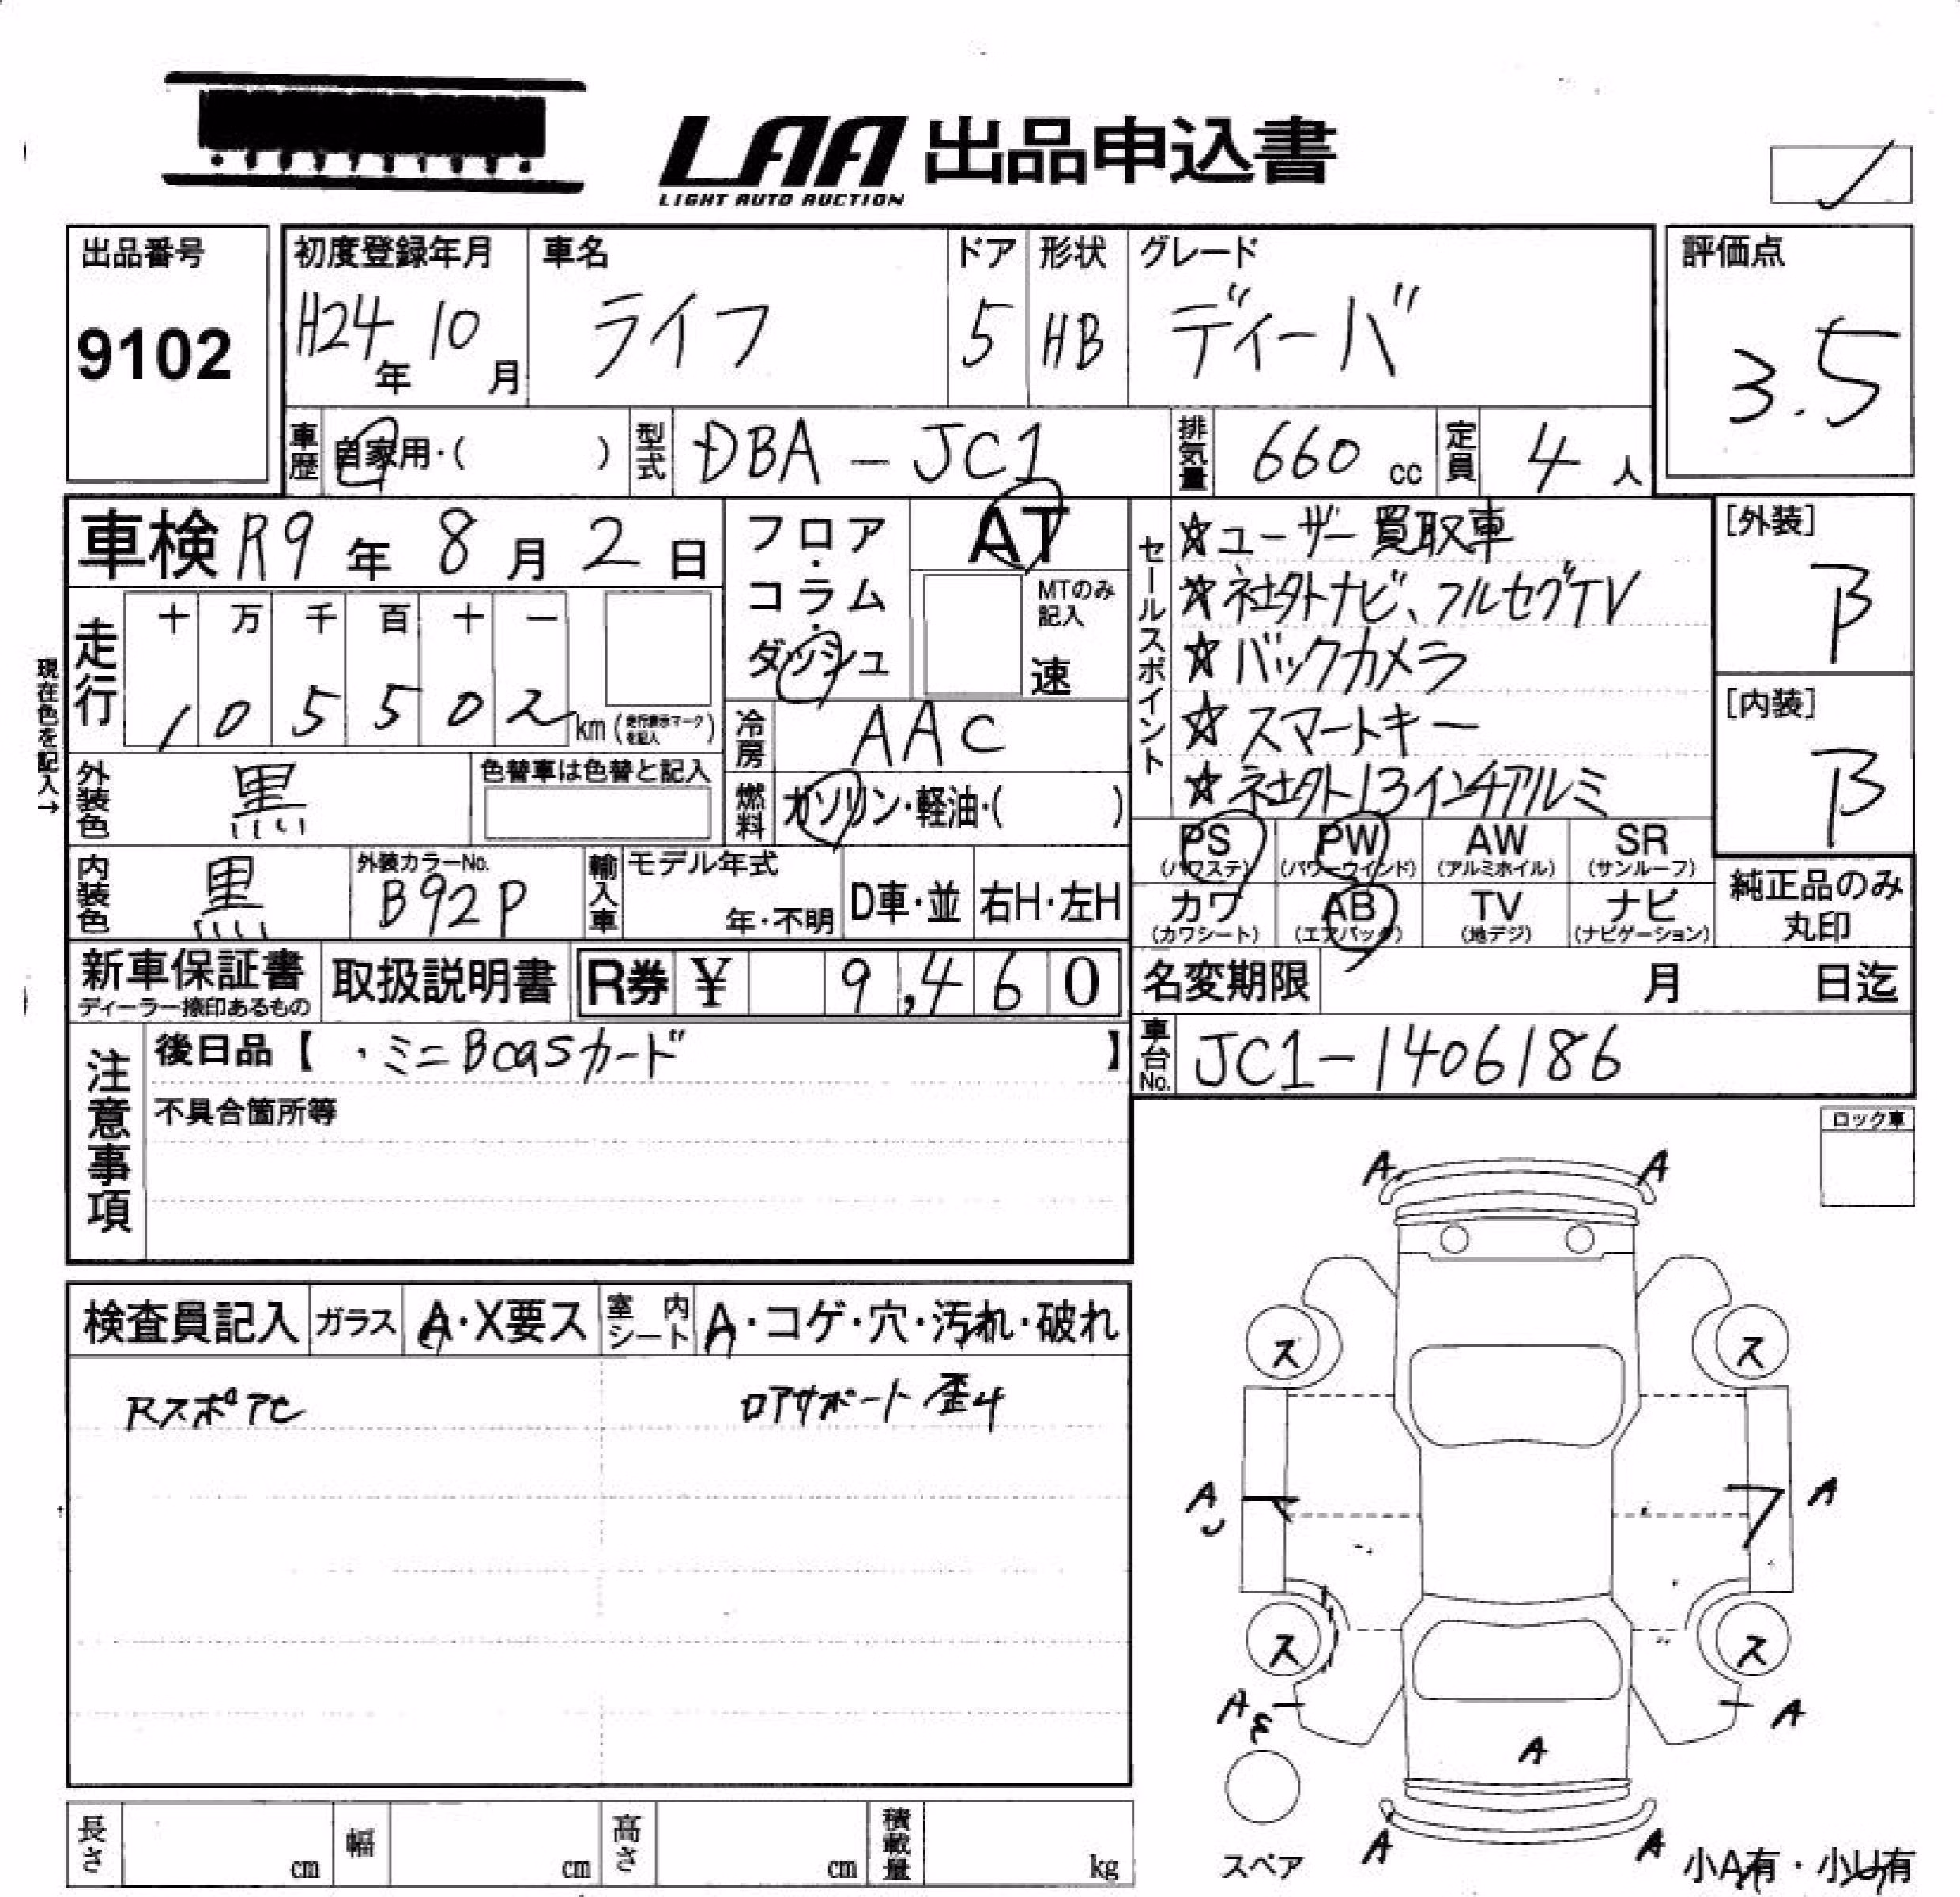 LAA 出品申込書
LIGHT AUTO AUCTION
出品番号
9102
初度登録年月
H24年 10月
車名
ライフ
ドア
5
形状
HB
グレード
ディーバ
評価点
3.5
車歴 自家用・( )
型式 DBA-JC1
排気量 660 cc
定員 4 人
車検 R9年 8月 2日
走行
十 万 千 百 十 一
1 0 5 5 0 2 km (走行表示マークを記入)
現在色を記入→
外装色 黒
色替車は色替と記入
内装色 黒
外装カラーNo.
B92P
フロア・コラム・ダッシュ
AT
MTのみ記入
速
冷房 AAC
燃料 ガソリン・軽油・( )
輸入車 モデル年式
年・不明
D車・並
右H・左H
セールスポイント
☆ユーザー買取車
☆社外ナビ、フルセグTV
☆バックカメラ
☆スマートキー
☆社外13インチアルミ
[外装]
B
[内装]
B
PS (パワステ)
PW (パワーウインド)
AW (アルミホイル)
SR (サンルーフ)
カワ (カワシート)
AB (エアバッグ)
TV (地デジ)
ナビ (ナビゲーション)
純正品のみ
丸印
新車保証書
ディーラー捺印あるもの
取扱説明書
R券 ¥ 9,460
名変期限 月 日迄
車台No. JC1-1406186
注意事項
後日品【 ・ミニBcasカード 】
不具合箇所等
ロック車
検査員記入
ガラス A・X要ス
室内シート A・コゲ・穴・汚れ・破れ
RスポアC
ロアサポート 歪み
A A
ス ス
A A
ス ス
A A
A
スペア
A A
小A有・小U有
長さ cm
幅 cm
高さ cm
積載量 kg